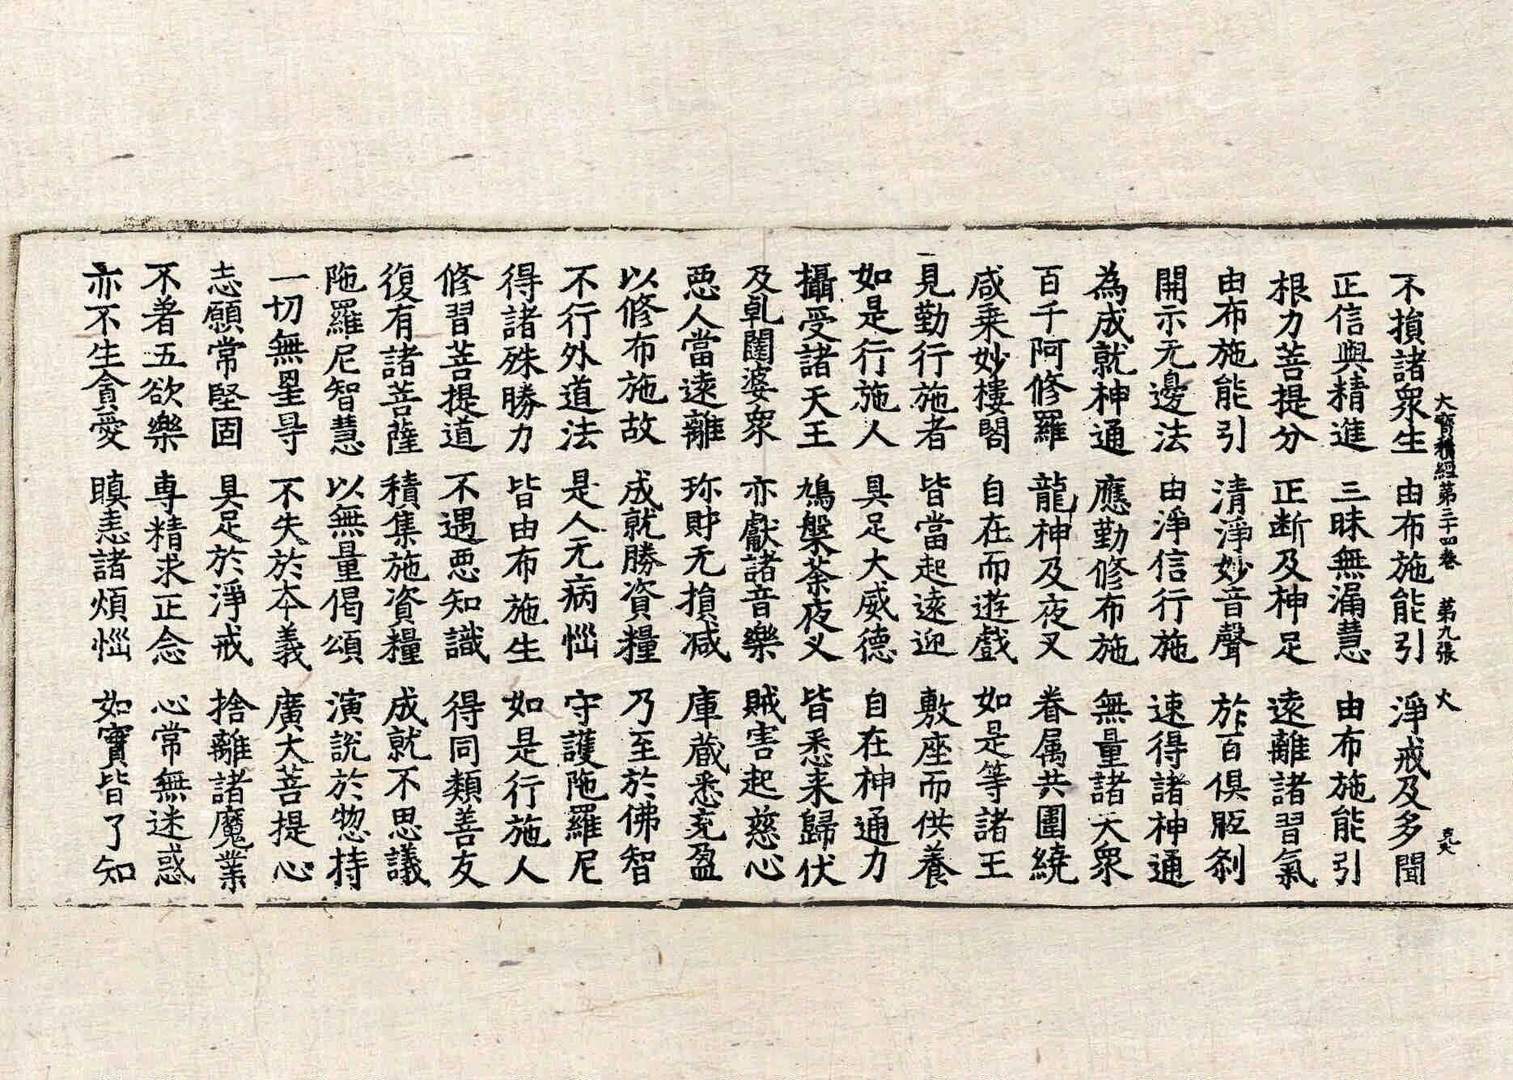 大寳積經第三十四卷 第九張 火
不損諸衆生 由布施能引 淨戒及多聞
正信與精進 三昧無漏慧 由布施能引
根力菩提分 正断及神足 逺離諸習氣
由布施能引 清淨妙音聲 扵百俱胝刹
開示无邊法 由淨信行施 速得諸神通
為成就神通 應勤修布施 無量諸大衆
百千阿修羅 龍神及夜叉 眷属共圍繞
咸乗妙樓閣 自在而遊戲 如是等諸王
見勤行施者 皆當起逺迎 敷座而供養
如是行施人 具足大威德 自在神通力
攝受諸天王 鳩槃荼夜叉 皆悉来歸伏
及乹闥婆衆 亦獻諸音樂 賊害起慈心
惡人當逺離 珎財无損减 庫藏悉充盈
以修布施故 成就勝資糧 乃至於佛智
不行外道法 是人无病惱 守護陁羅尼
得諸殊勝力 皆由布施生 如是行施人
修習菩提道 不遇惡知識 得同類善友
復有諸菩薩 積集施資糧 成就不思議
陁羅尼智慧 以無量偈頌 演說於惣持
一切無星导 不失於夲義 廣大菩提心
志願常堅固 具足於淨戒 捨離諸魔業
不著五欲樂 専精求正念 心常無迷惑
亦不生貪愛 瞋恚諸煩惱 如實皆了知